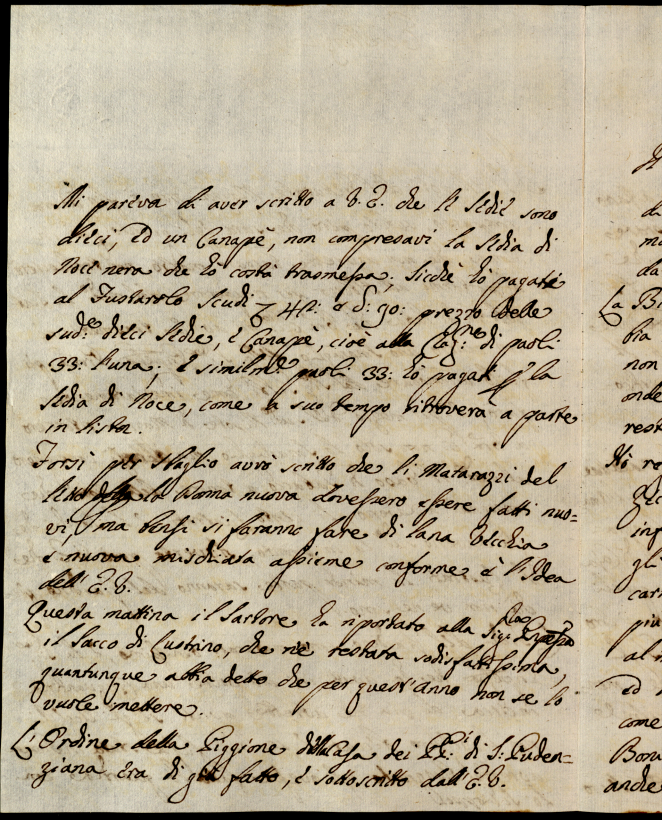 Mi pareva di aver scritto a V. E. che le sedie sono
dieci, ed un Canapè, non compresavi la sedia di
Noce nera che ho costà trasmessa; sicchè ho pagati
al Fustarolo Scudi 42: e d: 90: prezzo delle
sud:e dieci sedie, e Canapè, cioè alla rag:ne di paoli
33: l'una; e similm:e paoli 33: ho pagati p la
sedia di Noce, come a suo tempo ritroverà a parte
in lista.
Forsi per sbaglio avrò scritto che li Matarazzi del
letto la Roma nuova dovessero essere fatti nuo=
vi, ma bensi si faranno fare di lana Vecchia
e nuova mischiata assieme conforme è l'Idea
dell'E. V.
Questa mattina il Sartore ha riportato alla Sig:
il sacco di Lustrino, che n'è restata sodisfattissima,
quantunque abbia detto che per quest'Anno non se lo
vuole mettere.
L'Ordine della Piggione della Casa dei PP:i di S: Puden=
ziana era di già fatto, e sottoscritto dall'E. V.
La Bi
bia
non
onde
rest
Hò re
inf
gli
car
piu
al
ed
come
Bon
anche